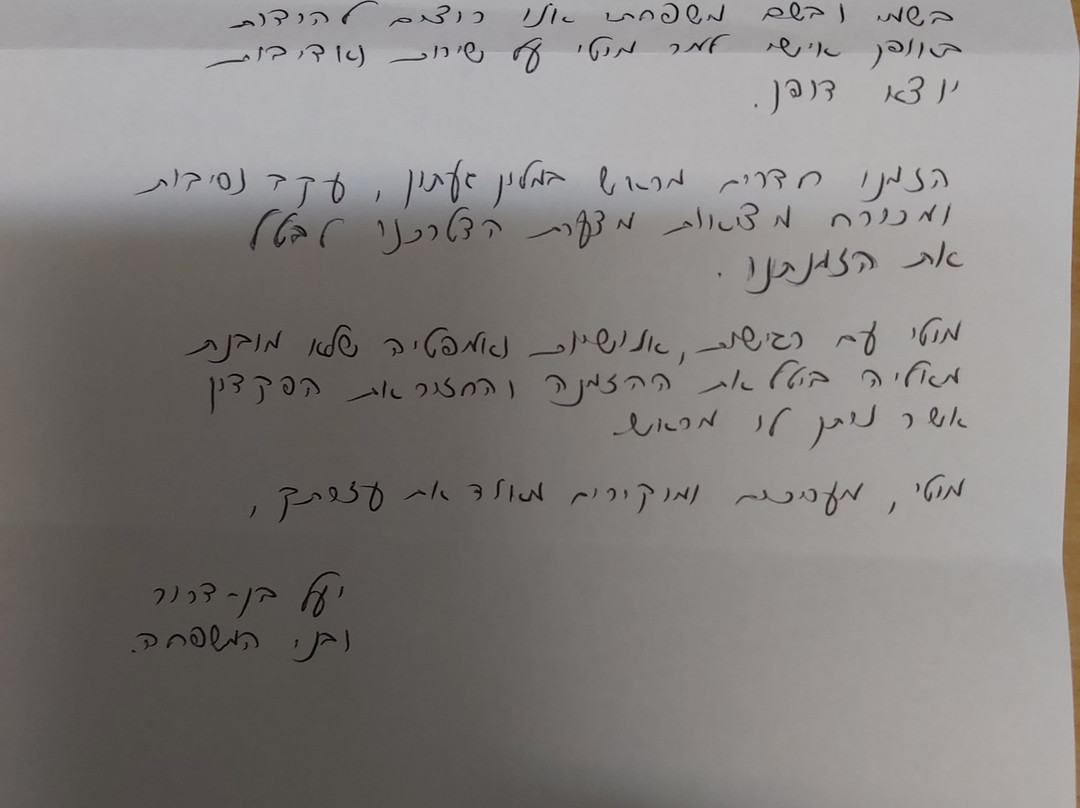 בשמי ובשם משפחתי אנו רוצים להודות
באופן אישי למר מוטי על שירות ואדיבות
יוצא דופן.
הזמנו חדרים מראש במלון געתון, עקב נסיבות
ומכורח מציאות מצערת הצטרכנו לבטל
את הזמנתנו.
מוטי עם רגישות, אנושיות ואמפטיה שלא מובנת
מאליה ביטל את ההזמנה והחזיר את הפקדון
אשר ניתן לו מראש.
מוטי, מעריכים ומוקירים מאוד את עזרתך,
יעל בן-דרור
ובני המשפחה.